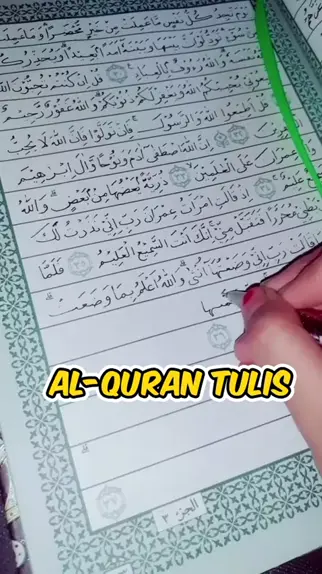 تَجِدُ كُلُّ نَفْسٍ مَّا عَمِلَتْ مِنْ خَيْرٍ مُّحْضَرًا وَمَا عَمِلَتْ
تَوَدُّ لَوْ أَنَّ بَيْنَهَا وَبَيْنَهُ أَمَدًا بَعِيدًا وَيُحَذِّرُكُمُ
نَفْسَهُ وَاللَّهُ رَءُوفٌ بِالْعِبَادِ ٣٠ قُلْ إِن كُنتُمْ تُحِبُّونَ اللَّهَ
يُحْبِبْكُمُ اللَّهُ وَيَغْفِرْ لَكُمْ ذُنُوبَكُمْ وَاللَّهُ غَفُورٌ رَّحِيمٌ
قُلْ أَطِيعُوا اللَّهَ وَالرَّسُولَ فَإِن تَوَلَّوْا فَإِنَّ اللَّهَ لَا يُحِبُّ
الْكَافِرِينَ ٣٢ إِنَّ اللَّهَ اصْطَفَى آدَمَ وَنُوحًا وَآلَ إِبْرَاهِيمَ
عِمْرَانَ عَلَى الْعَالَمِينَ ٣٣ ذُرِّيَّةً بَعْضُهَا مِن بَعْضٍ وَاللَّهُ
عَلِيمٌ ٣٤ إِذْ قَالَتِ امْرَأَتُ عِمْرَانَ رَبِّ إِنِّي نَذَرْتُ لَكَ
مُحَرَّرًا فَتَقَبَّلْ مِنِّي إِنَّكَ أَنتَ السَّمِيعُ الْعَلِيمُ ٣٥ فَلَمَّا
قَالَتْ رَبِّ إِنِّي وَضَعْتُهَا أُنثَى وَاللَّهُ أَعْلَمُ بِمَا وَضَعَتْ
٣٦
AL-QURAN TULIS
الجزء ٣